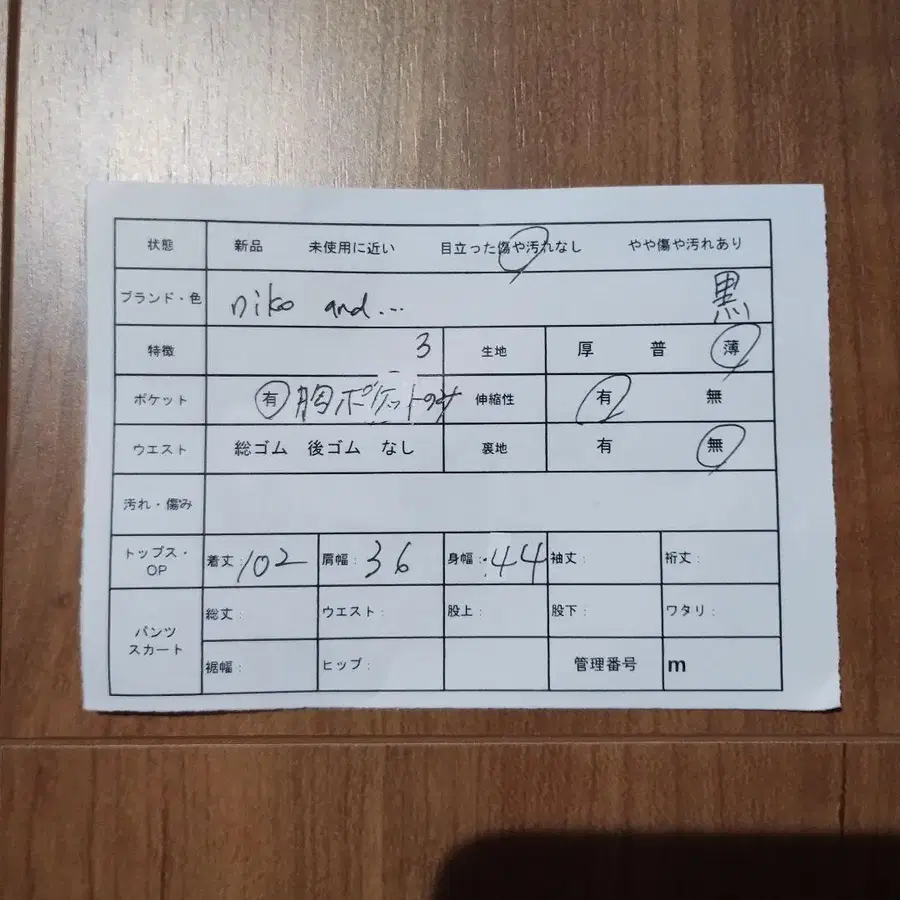 状態 新品 未使用に近い 目立った傷や汚れなし やや傷や汚れあり
ブランド・色 niko and... 黒
特徴 3 生地 厚 普 薄
ポケット 有 胸ポケットのみ 伸縮性 有 無
ウエスト 総ゴム 後ゴム なし 裏地 有 無
汚れ・傷み
トップス・OP 着丈: 102 肩幅: 36 身幅: 44 袖丈: 裄丈:
パンツ スカート 総丈: ウエスト: 股上: 股下: ワタリ:
裾幅: ヒップ: 管理番号 m